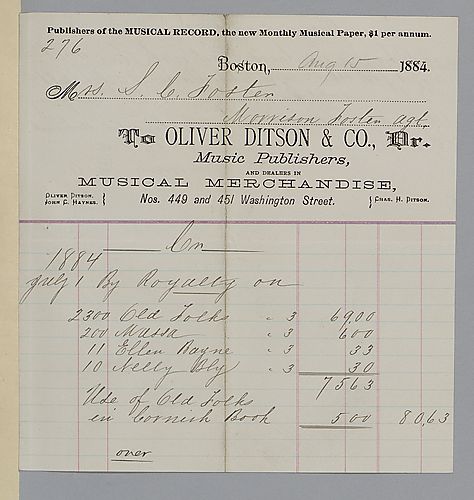 Publishers of the MUSICAL RECORD, the new Monthly Musical Paper, $1 per annum.
276
Boston, Aug 15 1884.
Mrs. S. C. Foster
Morrison Foster agt.
To OLIVER DITSON & CO., Dr.
Music Publishers,
AND DEALERS IN
MUSICAL MERCHANDISE,
OLIVER DITSON.
JOHN C. HAYNES.
Nos. 449 and 451 Washington Street.
CHAS. H. DITSON.
Cr
1884
July 1 By Royalty on
2300 Old Folks " 3 69,00
200 Massa " 3 600
11 Ellen Bayne " 3 33
10 Nelly Bly " 3 30
7563
Use of Old Folks
in Cornish Book 500 80,63
over